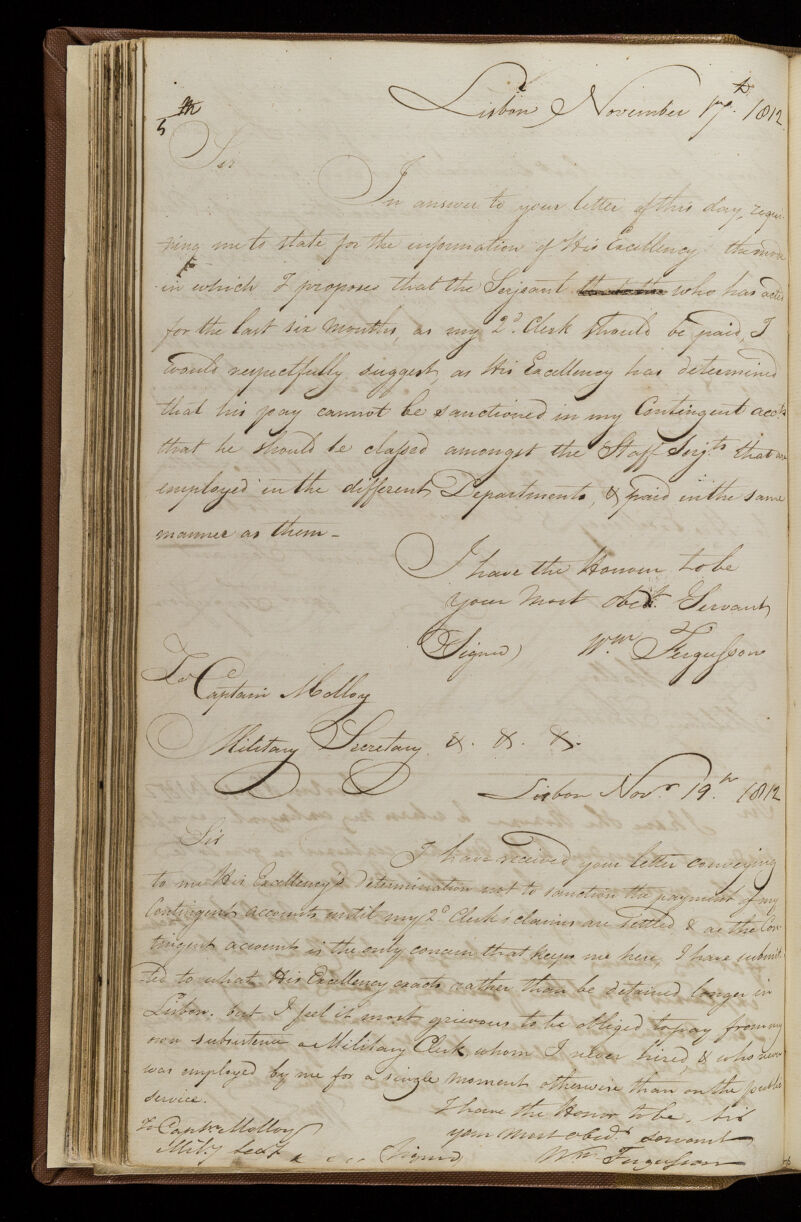 Lisbon November 17th. 1812
5th
Sir
In answer to your letter of this day, requi-
ring me to state for the information of His Excellency the mode
in which I propose that the Serjeant who has acted
for the last six Months, as my 2d. Clerk should be paid, I
would respectfully suggest, as His Excellency has determined
that his pay cannot be sanctioned in my Contingent acct.
that he should be classed amongst the Staff Serjts. that are
employed in the different Departments, & paid in the same
manner as them -
I have the Honour to be
your Most obedt. Servant
(Signed) Wm. Fergusson
To Captain Molloy
Military Secretary &. &. &.
Lisbon Novr. 19th. 1812
Sir
I have received your letter conveying
to me His Excellency's Determination not to sanction the payment of my
Contingent accounts until my 2d Clerk's claims are settled & as the Con-
tingent accounts is the only concern that keeps me here, I have submit-
ted to what His Excellency exacts rather than be detained longer in
Lisbon. but I feel it most grievous to be obliged to pay from my
own subsistence a Military Clerk whom I never hired & who never
was employed by me for a single moment otherwise than on the public
service.
I have the Honor to be. Sir
your most obedt. servant
To Captn Molloy
Mily Secy & . . . Signed Wm. Fergusson